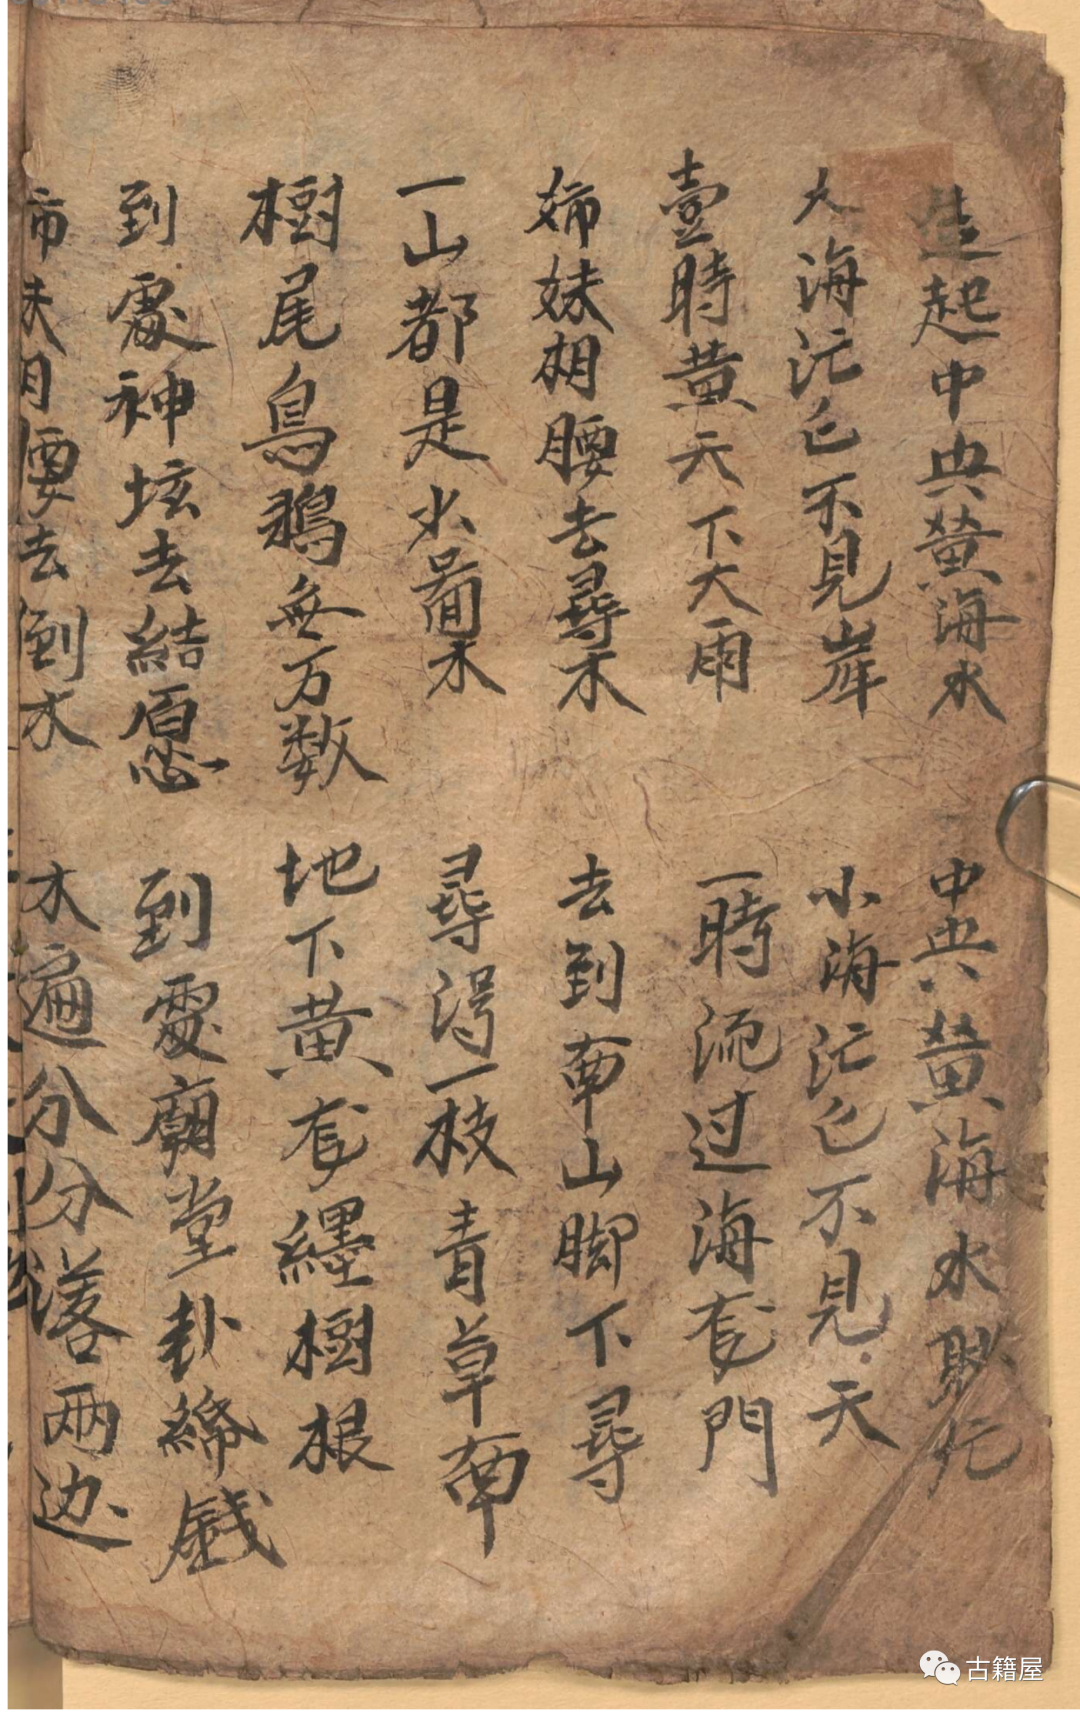 起中央黄海水 中央黄海水茫
大海茫〻不見岸 小海茫〻不見天
壹時黄天下大雨 一時流过海南門
姉妹相腰去尋木 去到南山脚下尋
一山都是木 尋淂一枝青草南
樹尾鳥鴉無万数 地下黄竜纏樹根
到處神坛去結愿 到處廟堂卦綿錢
姉妹相腰去倒木 木遍分分落两边
古籍屋